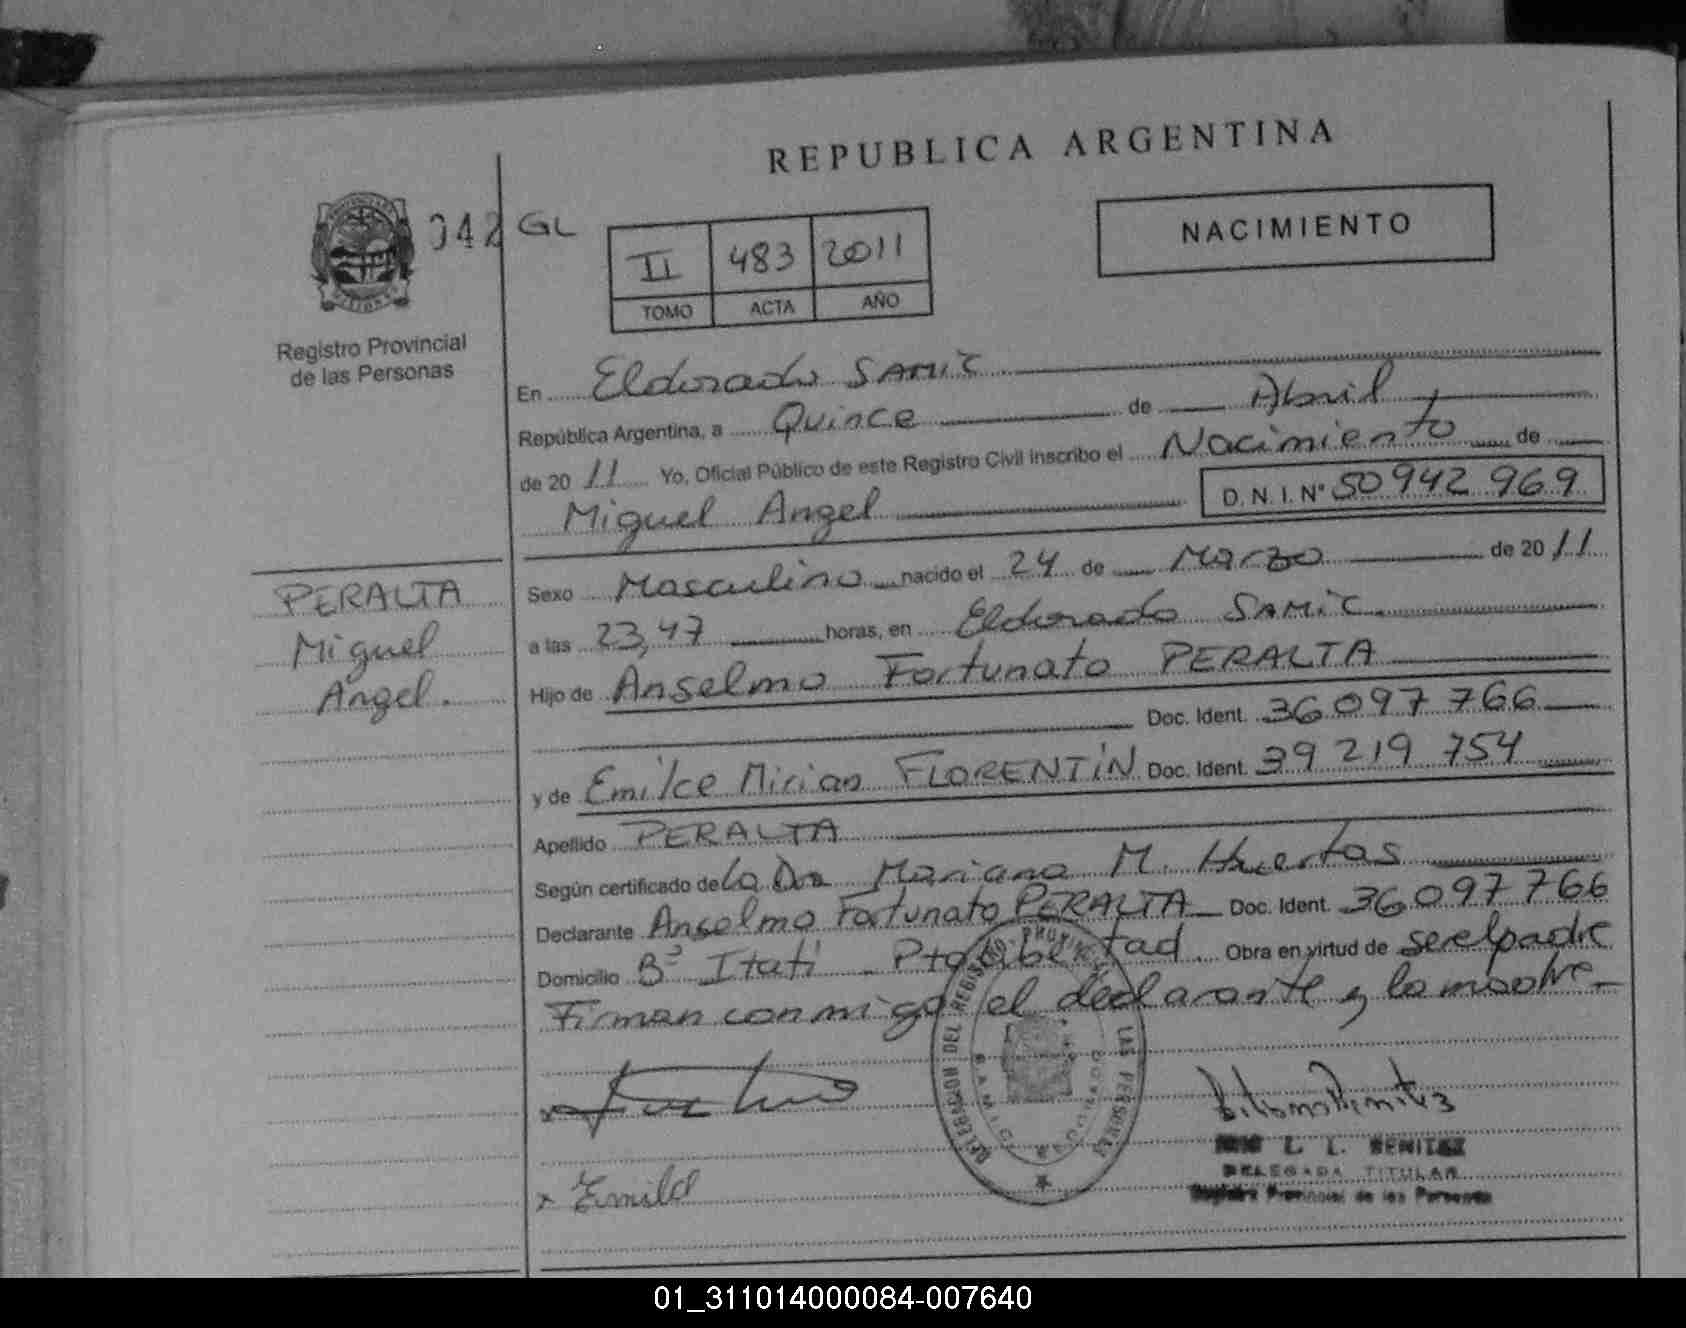 REPUBLICA ARGENTINA
042 GL
NACIMIENTO
II 483 2011
TOMO ACTA AÑO
Registro Provincial
de las Personas
En Eldorado SAMIC
República Argentina, a Quince de Abril
de 2011 Yo, Oficial Público de este Registro Civil inscribo el Nacimiento de
Miguel Angel D.N.I. Nº 50942969
PERALTA
Miguel
Angel.
Sexo Masculino nacido el 24 de Marzo de 2011
a las 23,47 horas, en Eldorado SAMIC
Hijo de Anselmo Fortunato PERALTA
Doc. Ident. 36097766
y de Emilce Mirian FLORENTÍN Doc. Ident. 39219754
Apellido PERALTA
Según certificado de La Dra Mariana M. Huertas
Declarante Anselmo Fortunato PERALTA Doc. Ident. 36097766
Domicilio Bº Itatí Pto Libertad Obra en virtud de ser el padre
Firman conmigo el declarante y la madre
DELEGACION DEL REGISTRO PROVINCIAL LAS PERSONAS
SAMIC ELDORADO
L. L. BENITEZ
DELEGADA TITULAR
Registro Provincial de las Personas
x Emilce
01_311014000084-007640